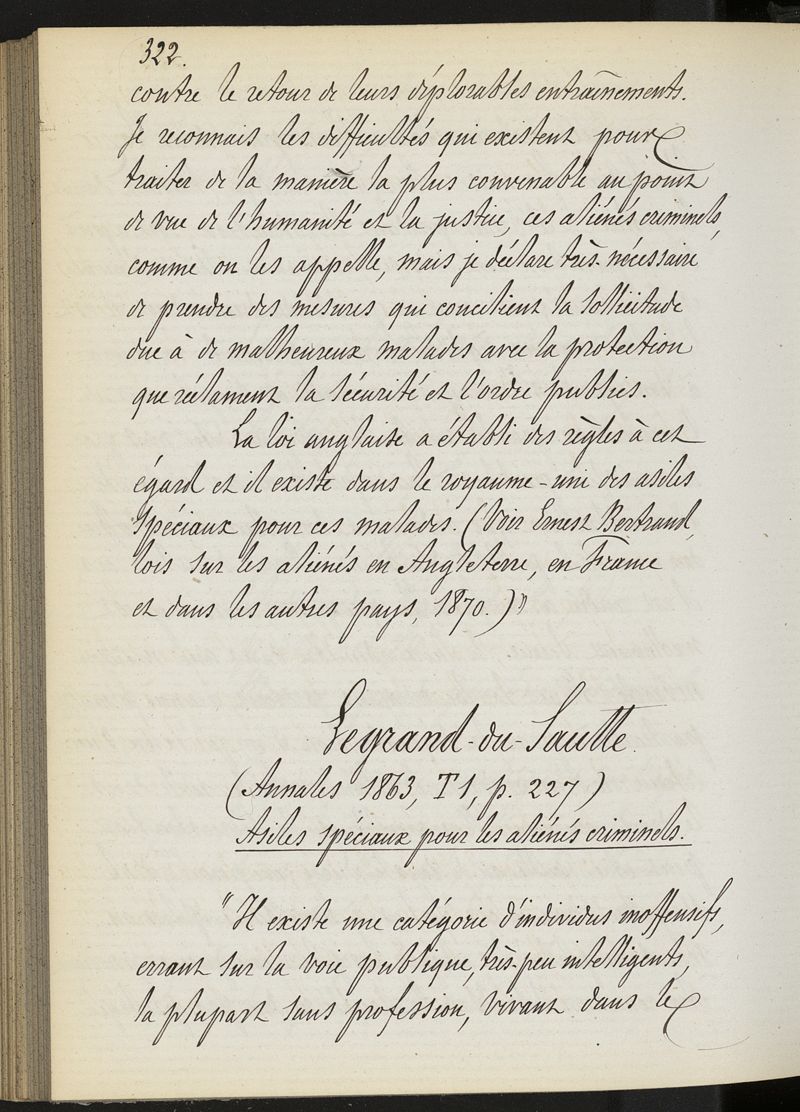 322.
contre le retour de leurs déplorables entraînements.
Je reconnais les difficultés qui existent pour
traiter de la manière la plus convenable au point
de vue de l'humanité et la justice, ces aliénés criminels,
comme on les appelle, mais je déclare très-nécessaire
de prendre des mesures qui concilient la sollicitude
due à de malheureux malades avec la protection
que réclament la sécurité et l'ordre publics.
La loi anglaise a établi des règles à cet
égard et il existe dans le royaume-uni des asiles
spéciaux pour ces malades. (Voir Ernest Bertrand,
lois sur les aliénés en Angleterre, en France
et dans les autres pays, 1870.)"
Legrand-du-Saulle.
(Annales 1863, T1, p. 227)
Asiles spéciaux pour les aliénés criminels.
"Il existe une catégorie d'individus inoffensifs,
errant sur la voie publique, très-peu intelligents,
la plupart sans profession, vivant dans le